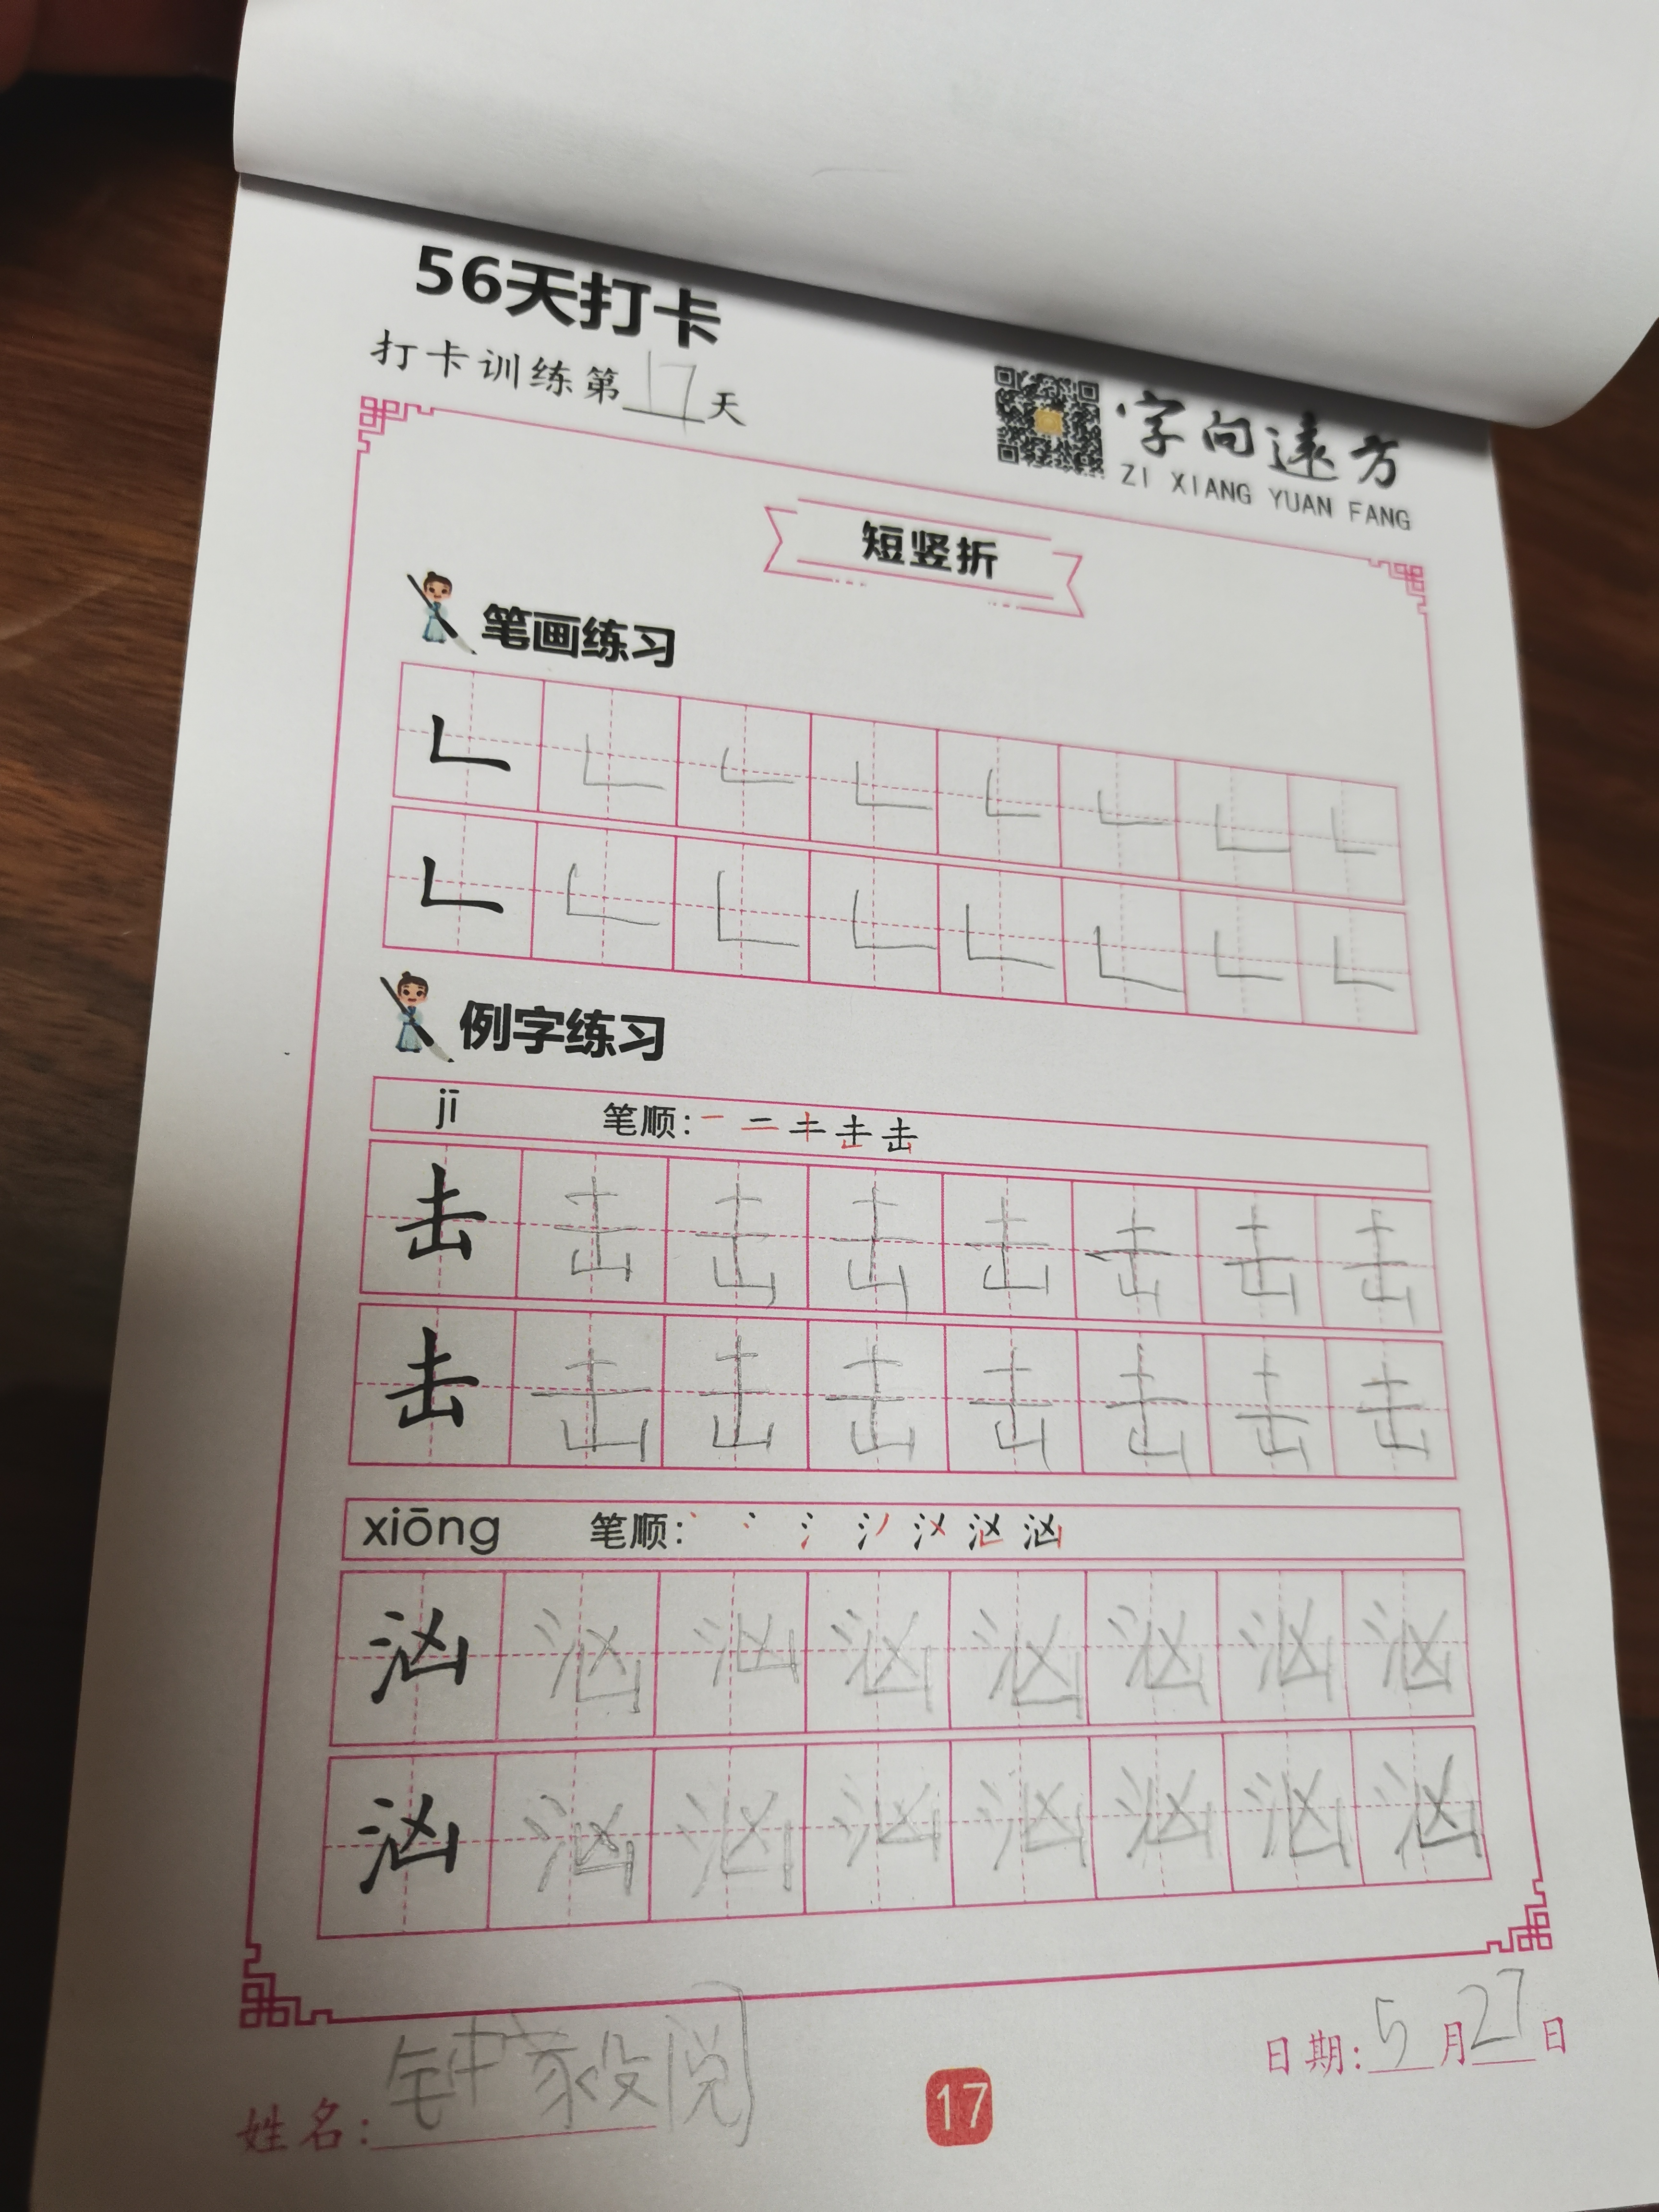 56天打卡
打卡训练第17天
字向远方
ZI XIANG YUAN FANG
短竖折
笔画练习
𠃊 𠃊 𠃊 𠃊 𠃊 𠃊 𠃊 𠃊
𠃊 𠃊 𠃊 𠃊 𠃊 𠃊 𠃊 𠃊
例字练习
jī 笔顺:
击 击 击 击 击 击 击 击
击 击 击 击 击 击 击 击
xiōng 笔顺:
汹 汹 汹 汹 汹 汹 汹 汹
汹 汹 汹 汹 汹 汹 汹 汹
姓名: 钟家毅阅
日期: 5月27日
17